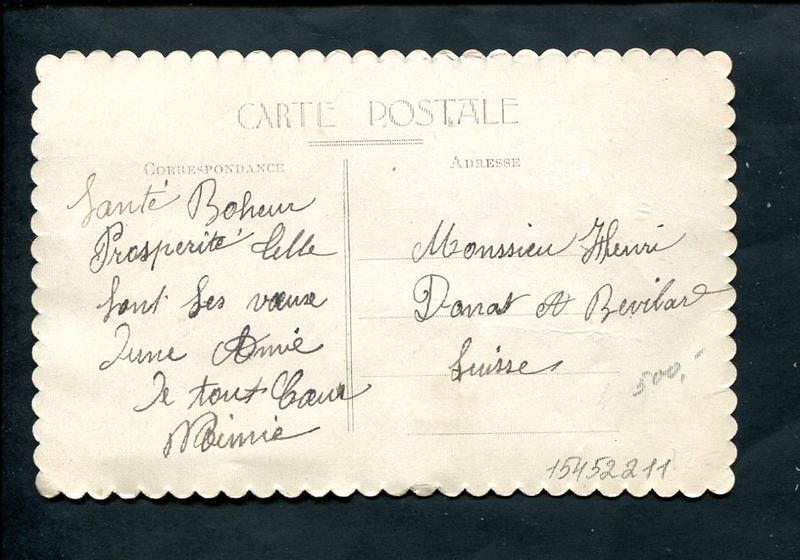 CARTE POSTALE
CORRESPONDANCE
Santé Boheur
Prosperité Celle
Sont Ses vœuse
D'une Amie
De tout Cœur
Mimie
ADRESSE
Monssieu Henri
Donat A Bevilard
Suisse
500,-
15452211